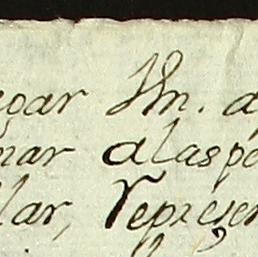 egar Yln. a
nar alaspe
lar, represen